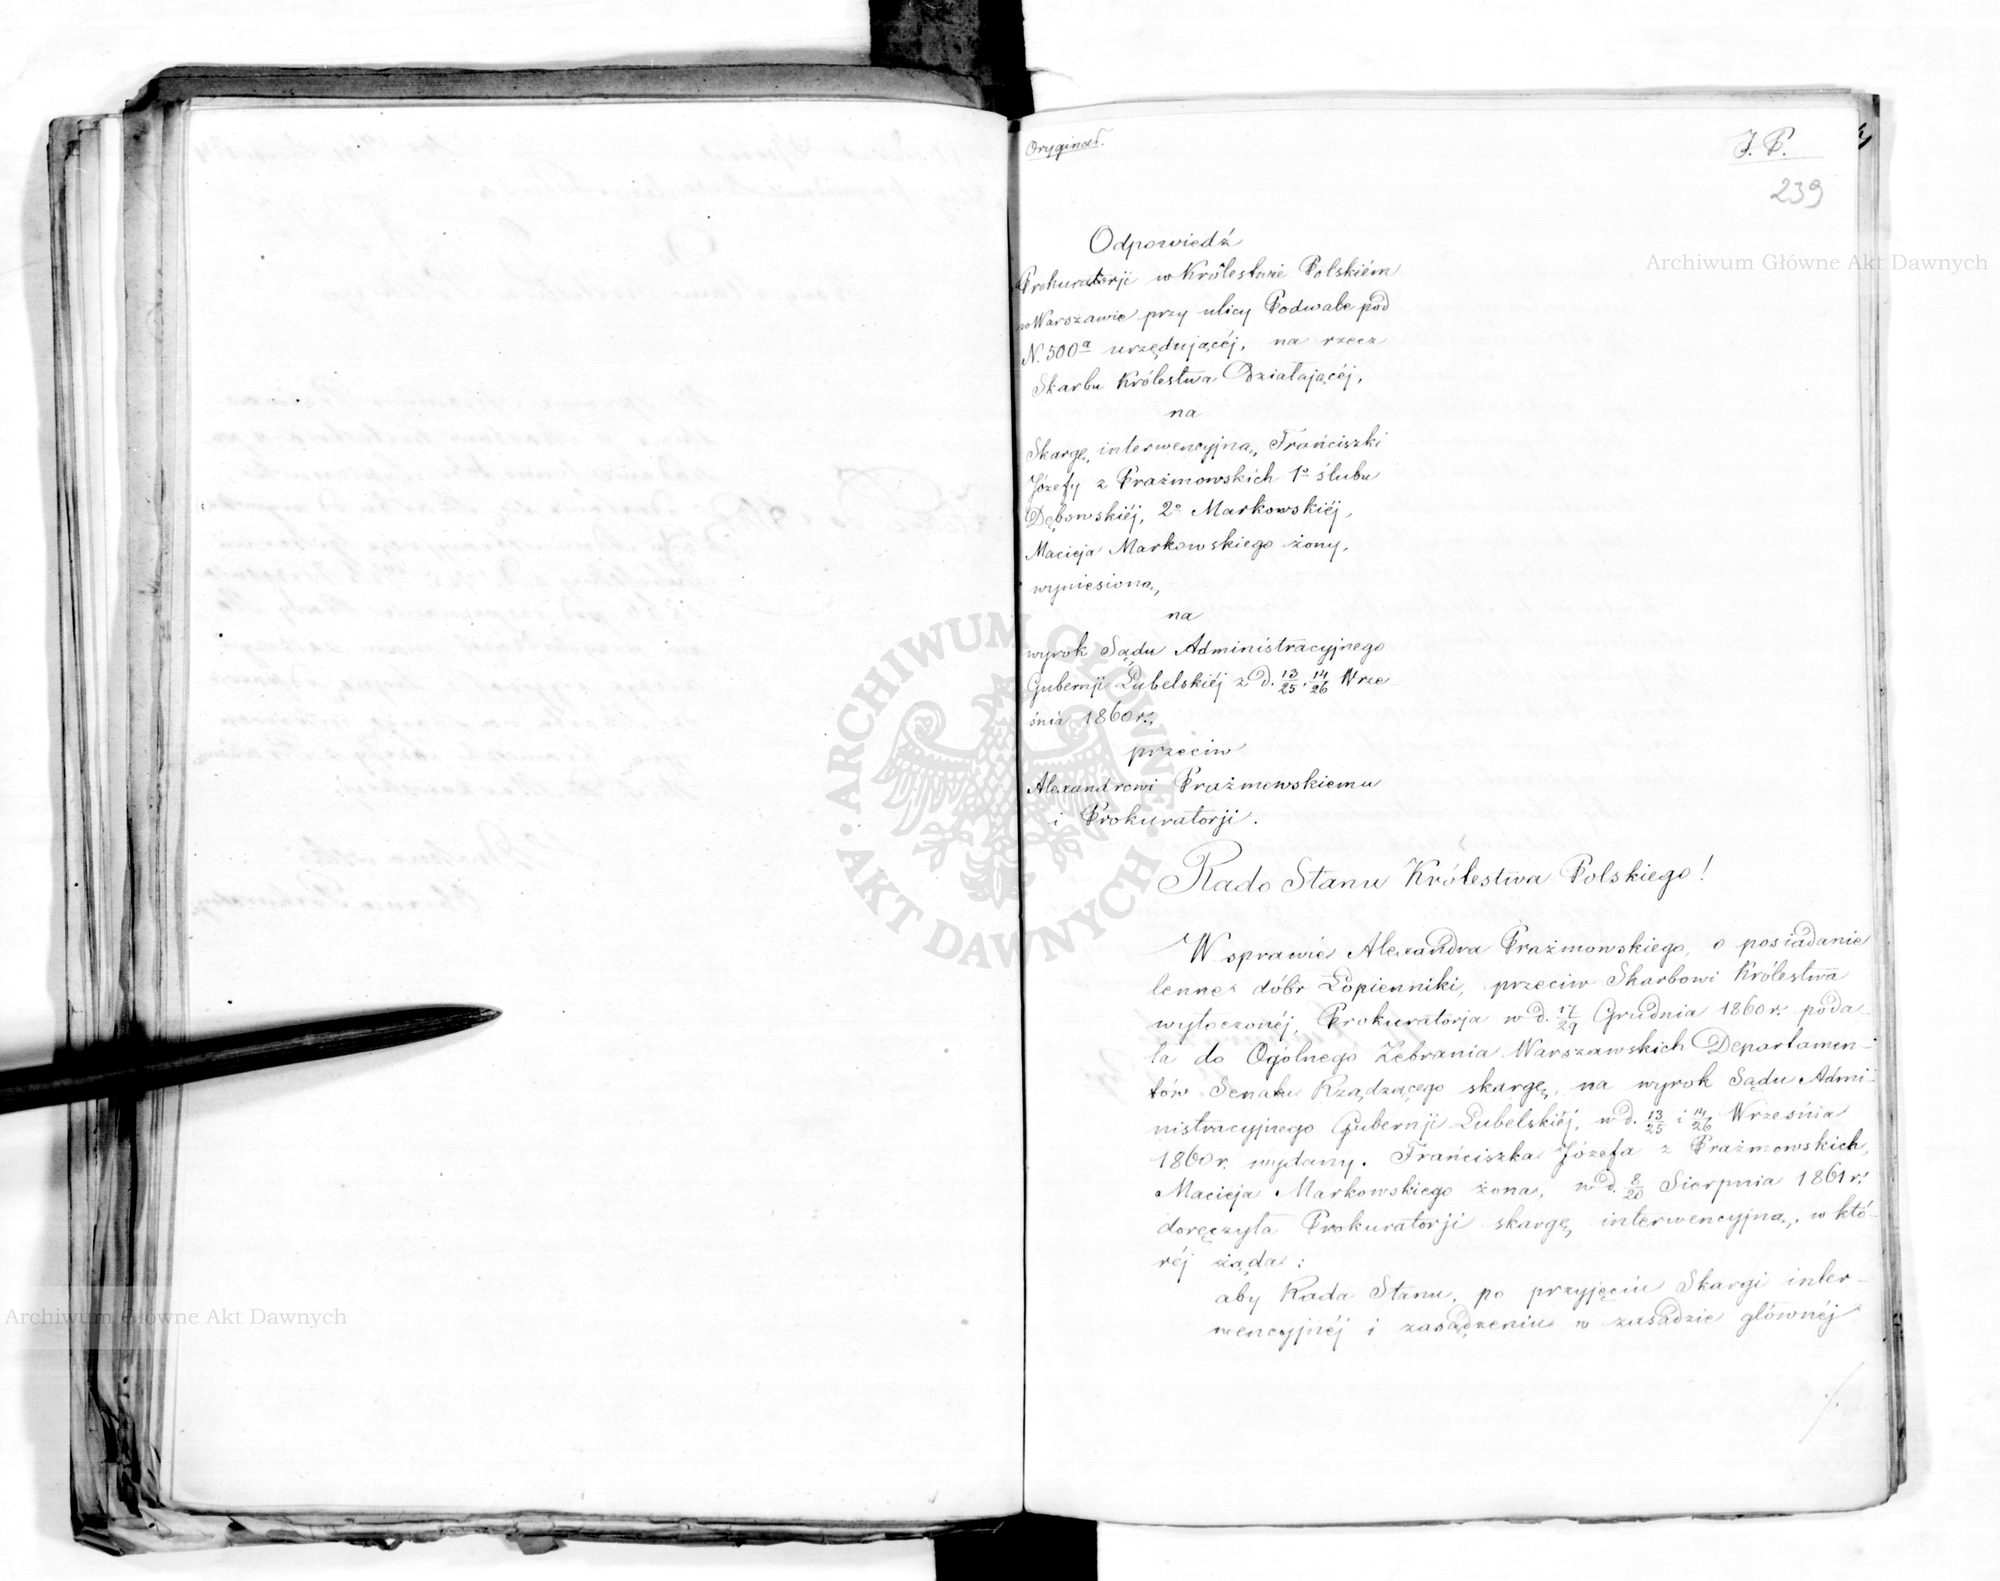 Oryginał.
J. P.
239
Odpowiedź
Prokuratorji w Królestwie Polskiém
w Warszawie przy ulicy Podwale pod
N. 500ª urzędującéj, na rzecz
Skarbu Królestwa Działającéj,
na
Skargę interwencyjną, Franciszki
Józefy z Prażmowskich 1º ślubu
Dębowskiéj, 2º Markowskiéj,
Macieja Markowskiego żony,
wyniesioną,
na
wyrok Sądu Administracyjnego
Gubernji Lubelskiéj z d. 13/25. 14/26 Wrze-
śnia 1860 r.
przeciw
Alexandrowi Prażmowskiemu
i Prokuratorji.
Rado Stanu Królestwa Polskiego!
W sprawie Alexandra Prażmowskiego, o posiadanie
lenne dóbr Łopienniki, przeciw Skarbowi Królestwa
wytoczonéj, Prokuratorja w d. 17/29 Grudnia 1860 r. poda-
ła do Ogólnego Zebrania Warszawskich Departamen-
tów Senatu Rządzącego skargę, na wyrok Sądu Admi-
nistracyjnego Gubernji Lubelskiéj, w d. 13/25 i 14/26 Września
1860 r. wydany. Franciszka Józefa z Prażmowskich,
Macieja Markowskiego żona, w d. 8/20 Sierpnia 1861 r.
doręczyła Prokuratorji skargę interwencyjną, w któ-
réj żąda:
aby Rada Stanu, po przyjęciu Skargi inter-
wencyjnéj i zasądzeniu w zasadzie głównéj
./.
Archiwum Główne Akt Dawnych
Archiwum Główne Akt Dawnych
ARCHIWUM GŁÓWNE · AKT DAWNYCH ·